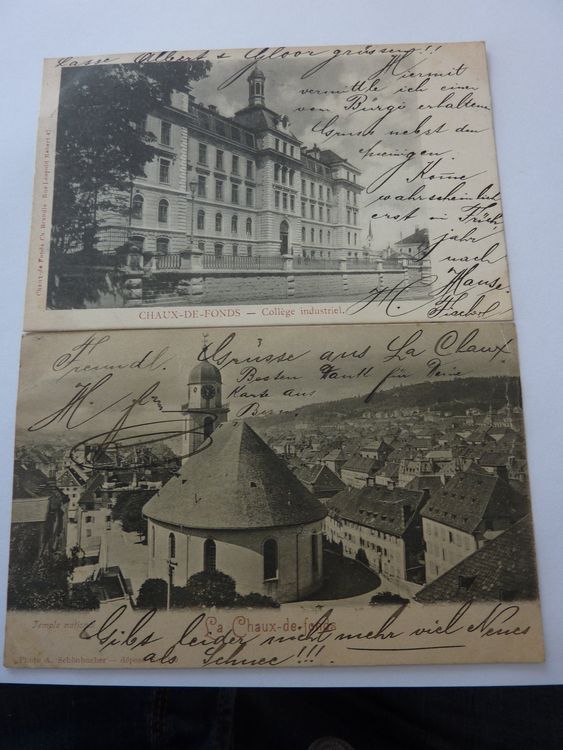 Lasse Albert & Gloor grüssen!!
Hiermit
vermittle ich einen
vom Bürgi erhaltenen
Gruss nebst den
meinigen.
Kome
wahrscheinlich
erst in Früh-
jahr
nach
Hause.
H. Fischer
Chaux-de-Fonds
CHAUX-DE-FONDS — Collège industriel.
Freundl. Grüsse aus La Chaux
Besten Dank für Deine
Karte aus
Bern.
Temple national
La Chaux-de-fonds
Gibt leider nicht mehr viel Neues
als Schnee!!!
Photo A. Schönbucher — déposé